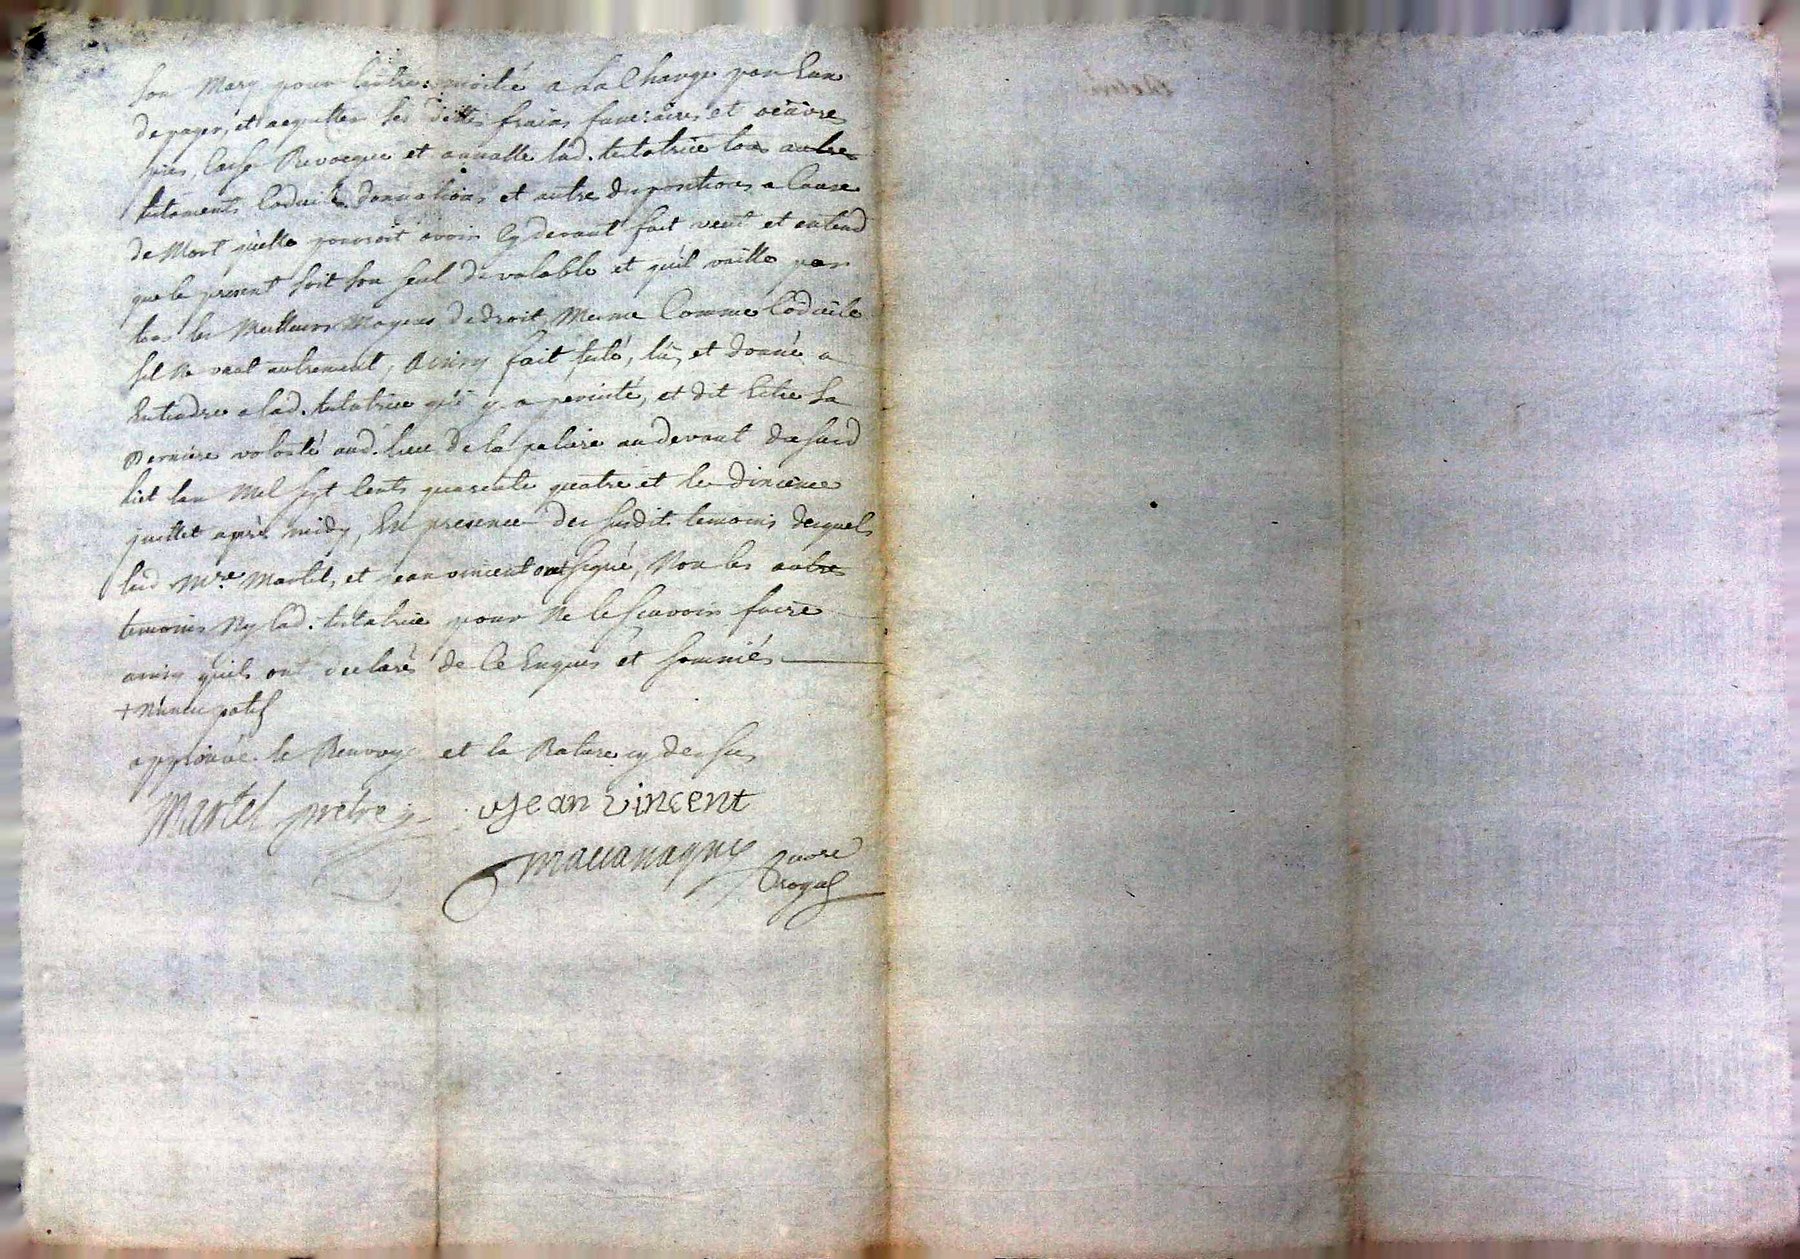 son Mary pour l'autre moitié a la Charge par Eux
de payer, et acquitter ses dettes fraix funeraires et oeuvres
pies, Casse Revocque et annulle lad. testatrice tous autres
testaments Codicils donnations et autre dispositions a Cause
de Mort qu'elle pourroit avoir Cy devant fait veut et entend
que le present soit son seul de valable et qu'il vaille par
tous les Meilleurs Moyens de droit, Meme Comme Codicile
sil Ne vaut autrement, Ainsy fait leu, et donné a
Entendre a lad. testatrice qui y a percisté, et dit Estre sa
Derniere volonté aud. lieu de la au devant dususd
Mil sept Cents quarente quatre et le
juillet après midy, En presence des susdits temoins desquels
led Mre. Martel, et jean vincent ont signé, Non les autres
temoins Ny lad. testatrice pour Ne le scavoir faire
ainsy quils ont declaré de Ce Enquis et sommés
+ Nuncupatif
approuvé le Renvoye et la Rature cy dessus
Martel pretre
Jean vincent
royal